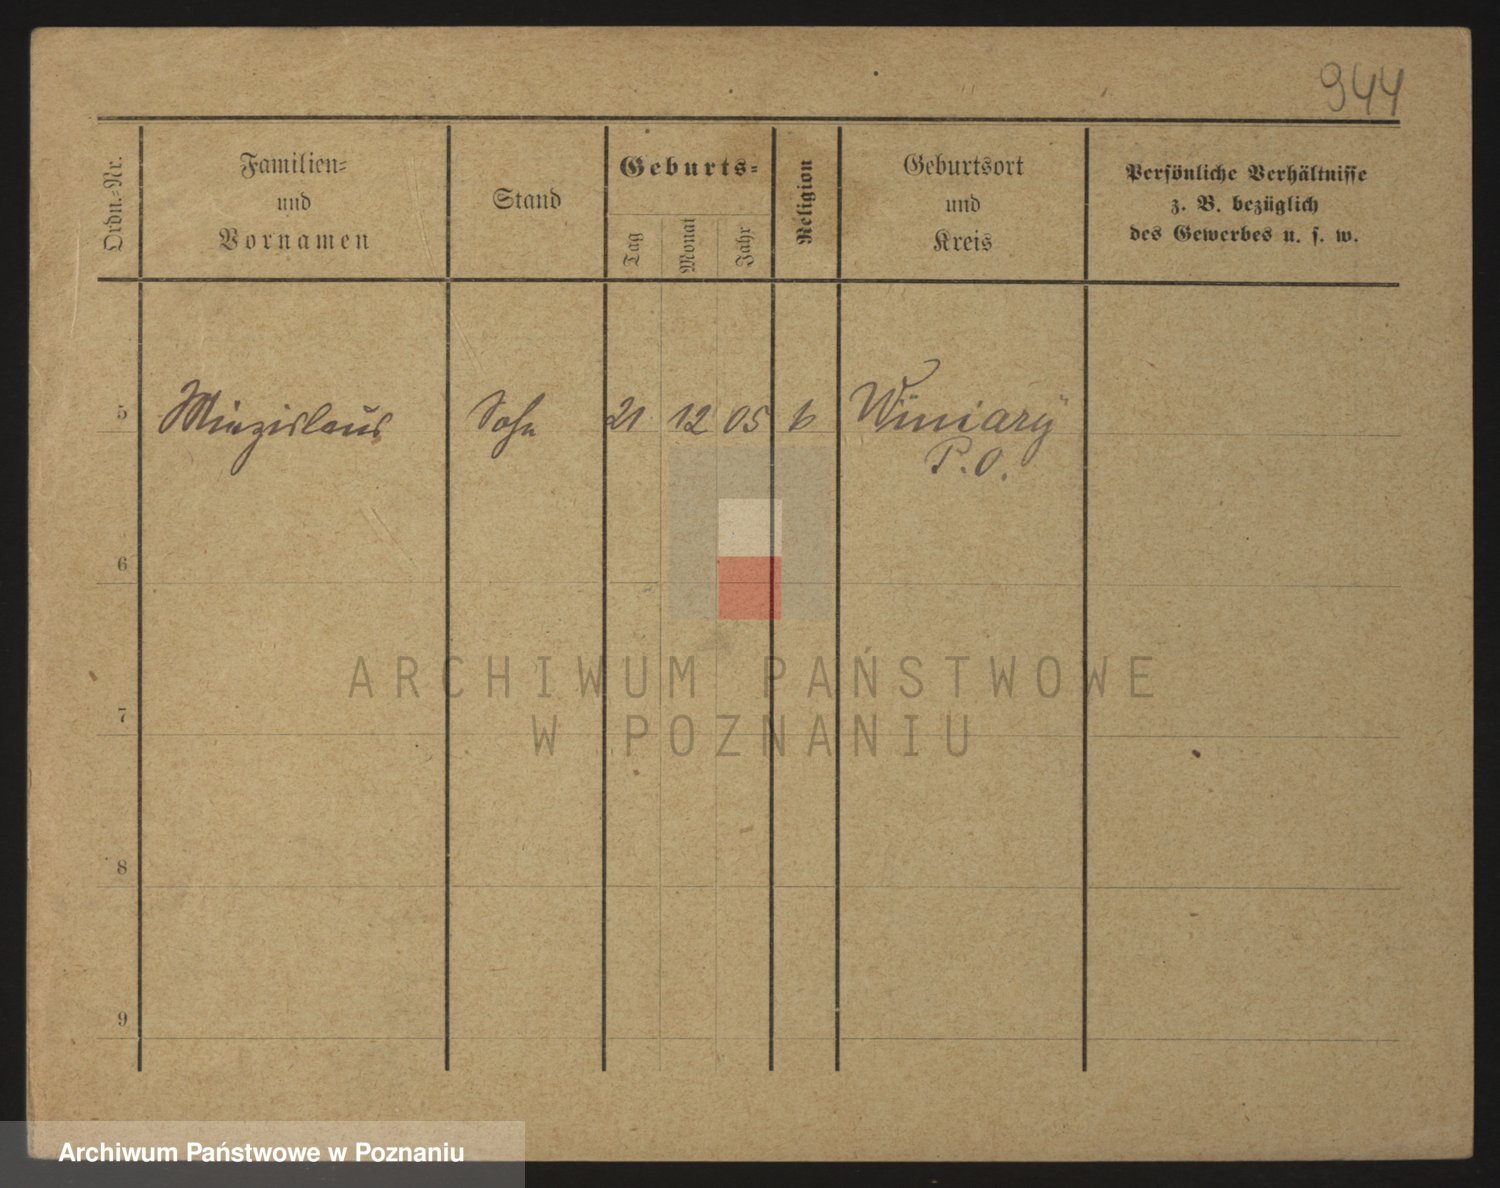 944
Ordn.-Nr.
Familien-
und
Vornamen
Stand
Geburts-
Tag
Monat
Jahr
Religion
Geburtsort
und
Kreis
Persönliche Verhältnisse
z. B. bezüglich
des Gewerbes u. s. w.
5 Miezislaus Sohn 21 12 05 k Winiary
P. O.
6
7
8
9
ARCHIWUM PAŃSTWOWE
W POZNANIU
Archiwum Państwowe w Poznaniu